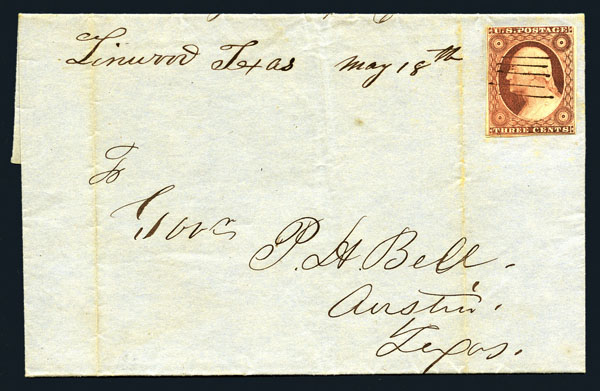 Linwood Texas May 18th
U.S. POSTAGE
THREE CENTS
To
Govr
P. H. Bell.
Austin.
Texas.